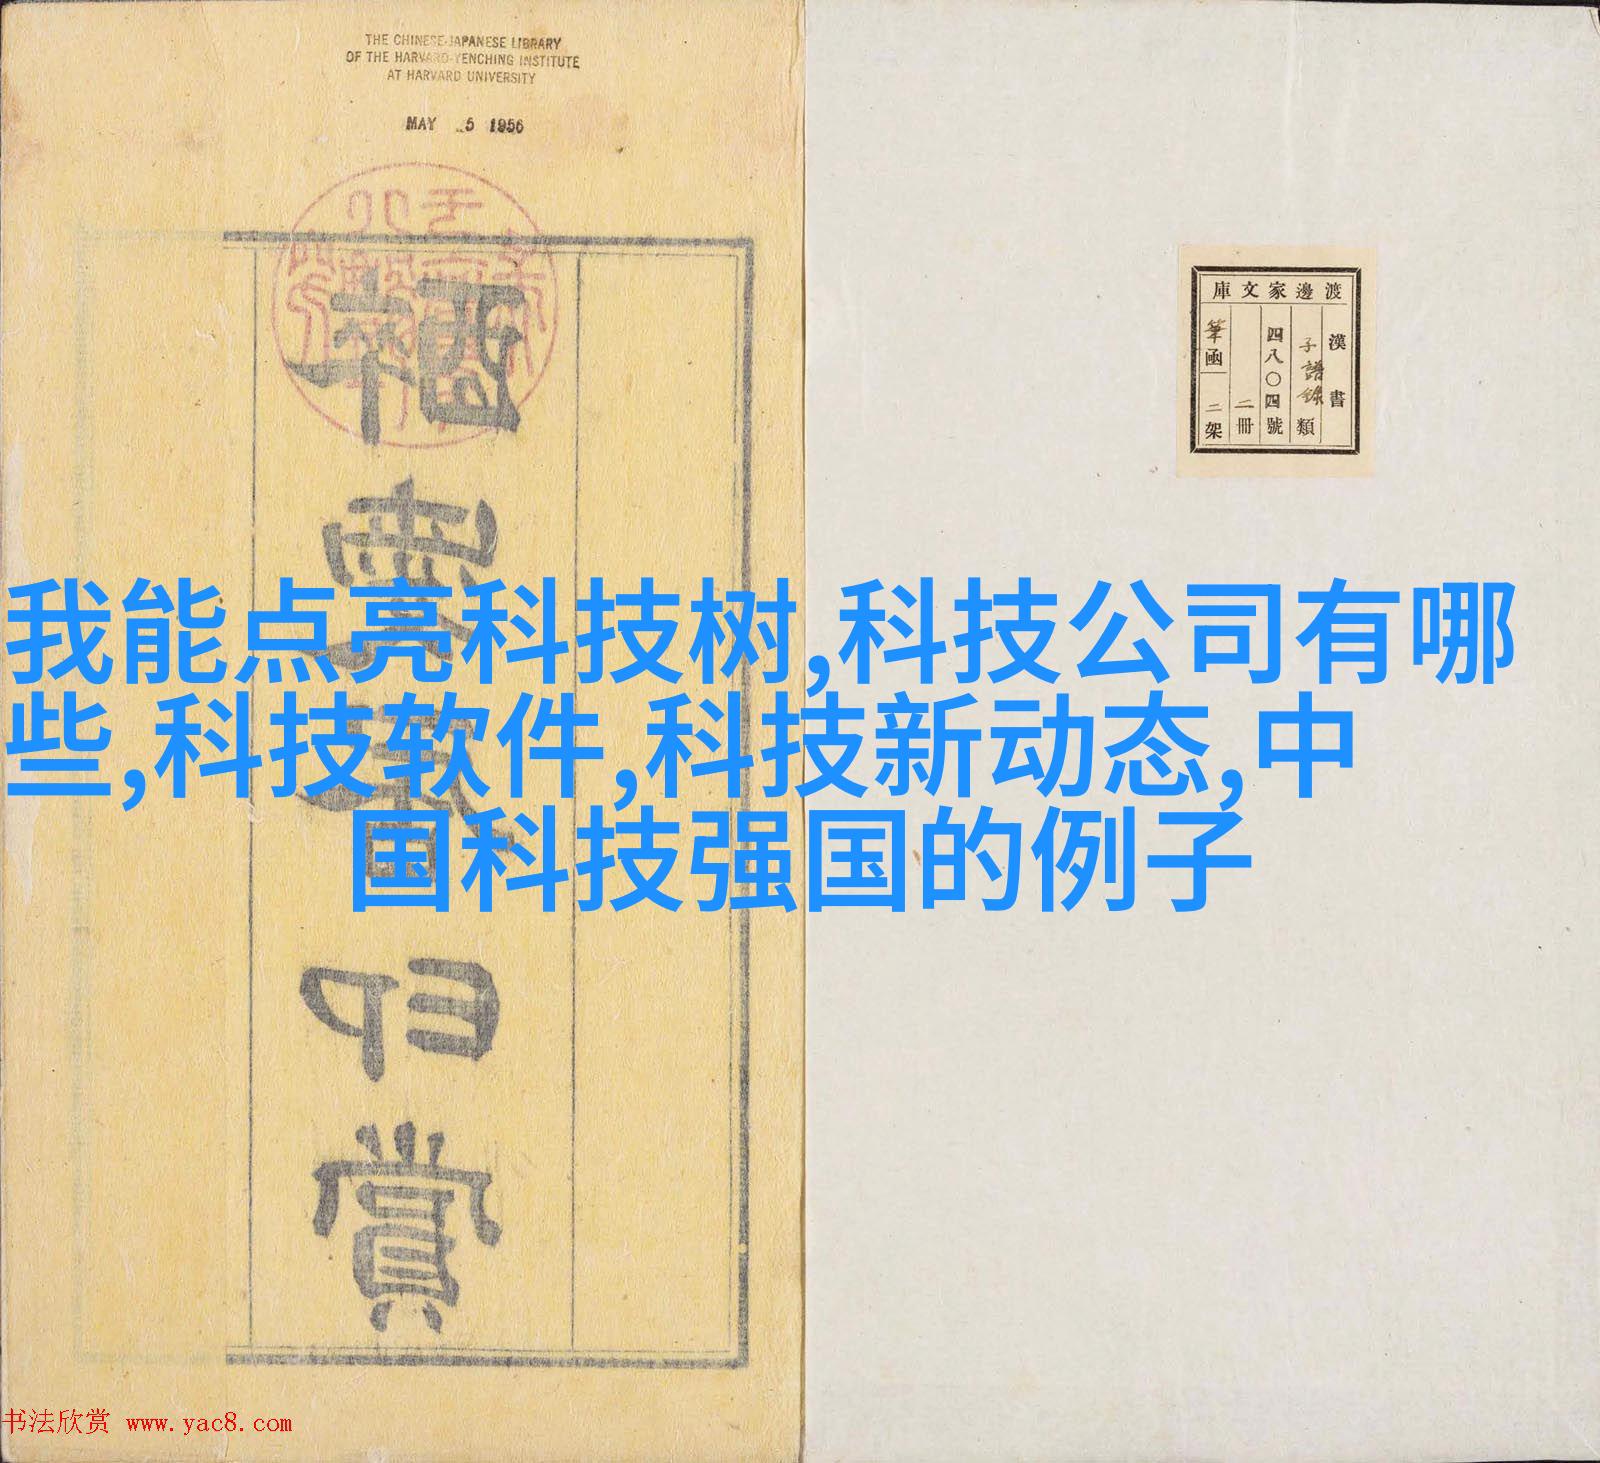 THE CHINESE-JAPANESE LIBRARY
OF THE HARVARD-YENCHING INSTITUTE
AT HARVARD UNIVERSITY
MAY 5 1956
渡邊家文庫
漢書
子譜錄類
四八〇四號
二冊
筆函二架
我能点亮科技树,科技公司有哪
些,科技软件,科技新动态,中
国科技强国的例子
书法欣赏 www.yac8.com